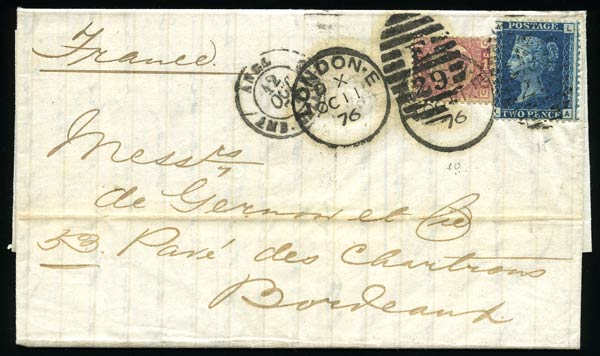 France
ANGL.
12
OCT
LONDON E
X
OC 11
76
29
76
POSTAGE
L
TWO PENCE
A
Mess rs
de Gernon et Cie
53. Pavé des Chartrons
Bordeaux